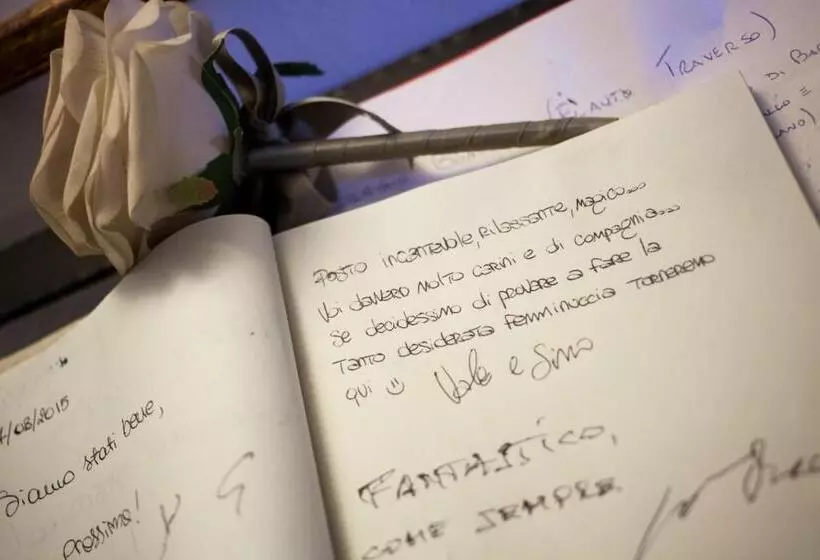 TRAVERSO)
FLAUTO
DI BAR
7/08/2015
Siamo stati bene,
prossima!
Posto incantevole, rilassante, magico...
Voi davvero molto carini e di compagnia...
Se decidessimo di provare a fare la
tanto desiderata femminuccia torneremo
qui ☺ Vale e Simo
FANTASTICO,
COME SEMPRE